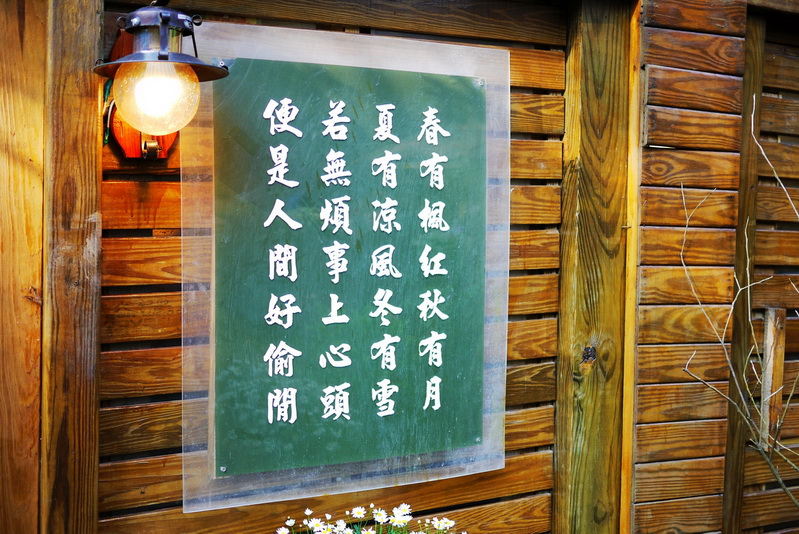 春有楓红秋有月
夏有涼風冬有雪
若無煩事上心頭
便是人間好偷閒